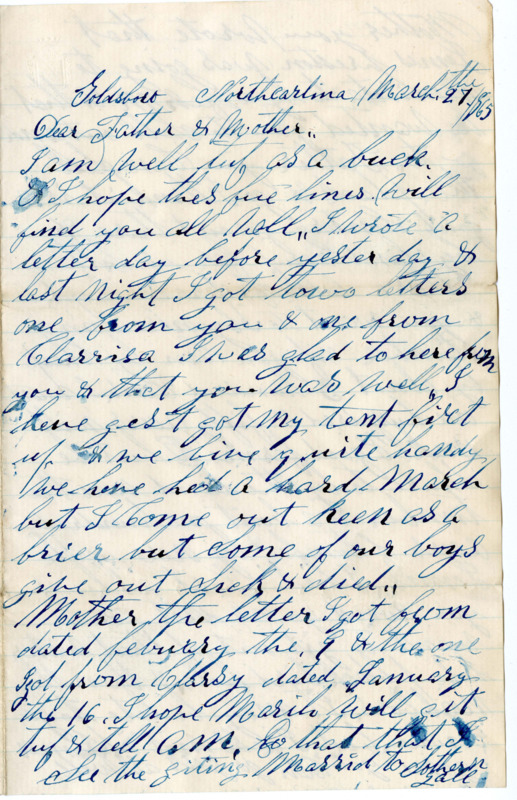 Goldsboro Northcarlina March the 27 1865
Dear Father & Mother,,
I am well tuf as a buck.
& I hope thes fue lines will
find you all well,, I wrote a
letter day before yesterday &
last night I got towo letters
one from you & one from
Clarrisa I was glad to here from
you & that you was well,, I
have gest got my tent fixt
up & we live quite handy
we have had a hard March
but I Come out keen as a
brier but Some of our boys
give out Sick & died,,
Mother the letter I got from
dated febuary the 9 & the one
I got from Clarsy dated January
the 16. I hope will git
tuf & tell that that I
See the giting Marrid to